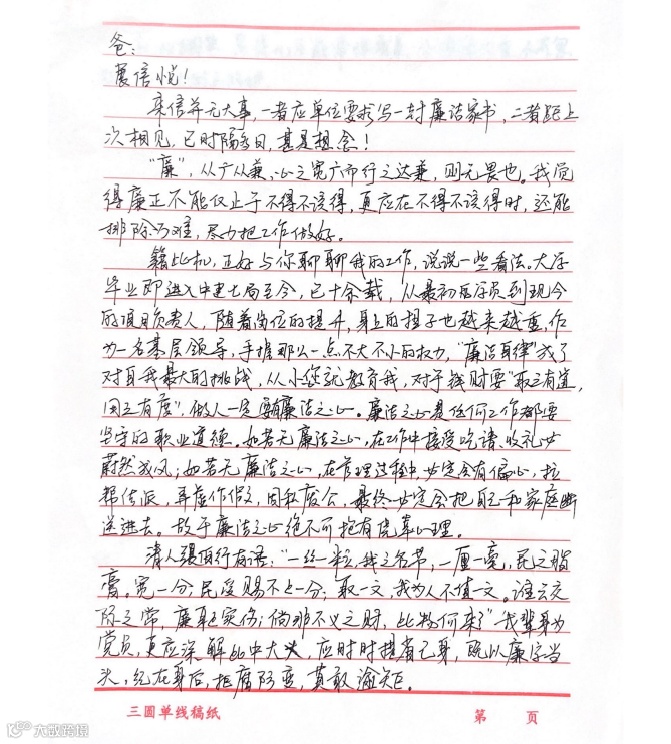 爸:
展信悦!
来信并无大事,一者应单位要求写一封廉洁家书。二者距上
次相见,已时隔多日,甚是想念!
"廉",从广从兼,心之宽广而行之达兼,则无畏也。我觉
得廉正不能仅止于不得不该得,更应在不得不该得时,还能
排除万难,尽力把工作做好。
籍此机,正好与你聊聊我的工作,说说一些看法。大学
毕业即进入中建七局至今,已十余载,从最初的学员到现今
的项目负责人,随着岗位的提升,身上的担子也越来越重,作
为一名基层领导,手握那么一点不大不小的权力,"廉洁自律"成了
对自我最大的挑战,从小您就教育我,对于钱财要"取之有道,
用之有度",做人一定要有廉洁之心。廉洁之心是任何工作都要
坚守的职业道德。如若无廉洁之心,在工作中接受吃请、收礼必
蔚然成风;如若无廉洁之心,在管理过程中必定会有偏心,拉
帮结派,弄虚作假,因私废公,最终必定会把自己和家庭断
送进去。故于廉洁之心绝不可抱有侥幸心理。
清人张伯行有语:"一丝一粒,我之名节,一厘一毫,民之脂
膏。宽一分,民受赐不止一分;取一文,我为人不值一文。谁云交
际之常,廉耻实伤;倘非不义之财,此物何来"我辈身为
党员,更应深解此中大义,应时时提省己身,既以廉字当
头,纪在身后,拒腐防变,莫敢逾矩。
三圆单线稿纸
第 页
大数跨境